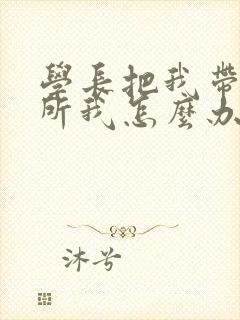 學長把我帶
所我怎麼办
沐兮